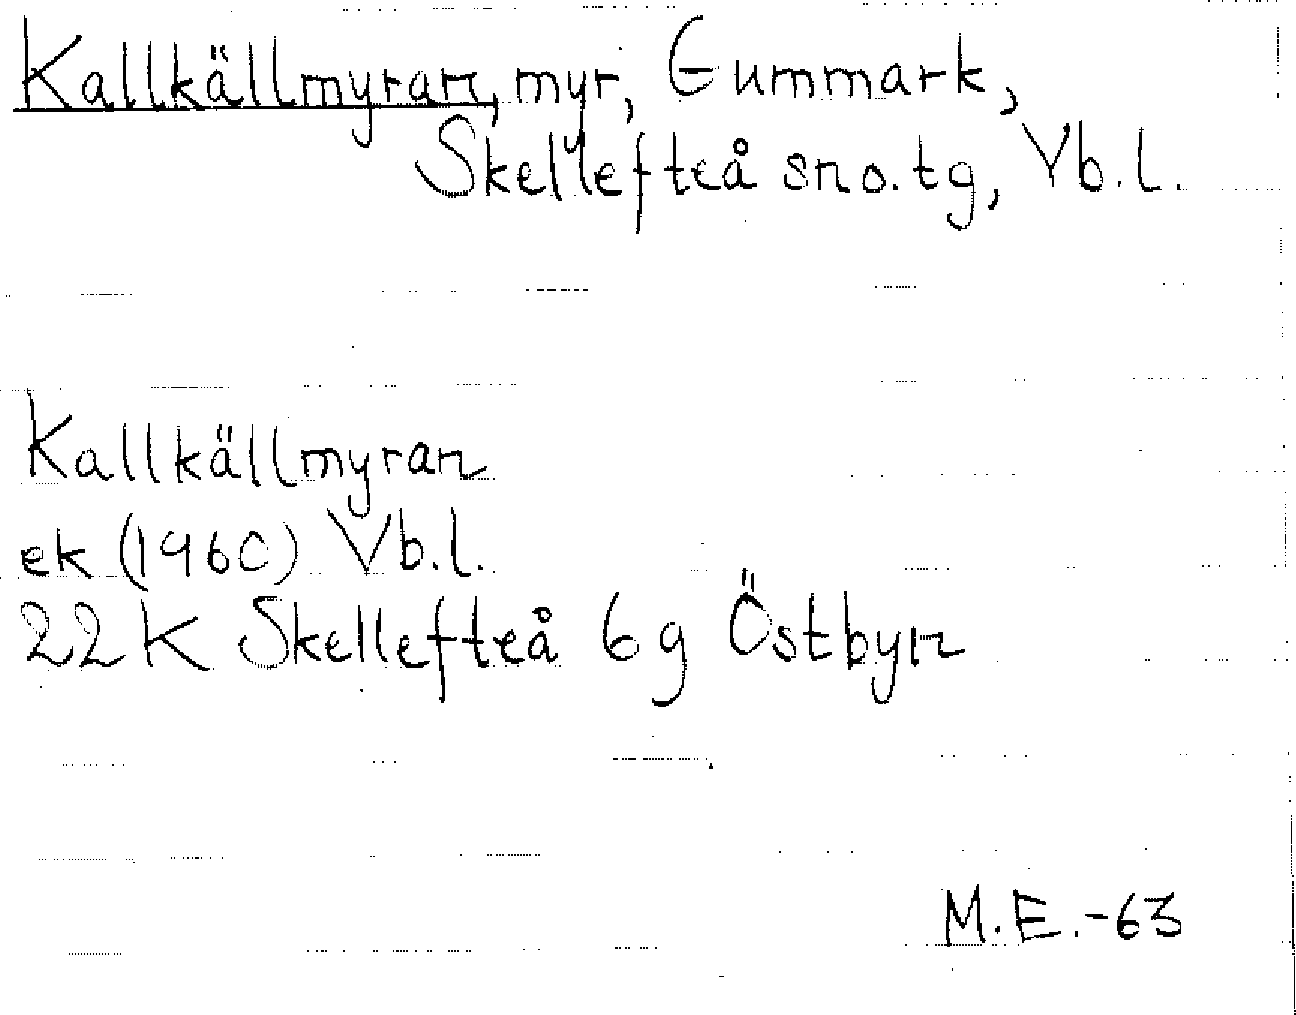 Kallkällmyran, myr, Gummark,
Skellefteå sno.tg, Vb.l.
Kallkällmyran
ek (1960) Vb.l.
22K Skellefteå 6g Östbyn
M.E.-63